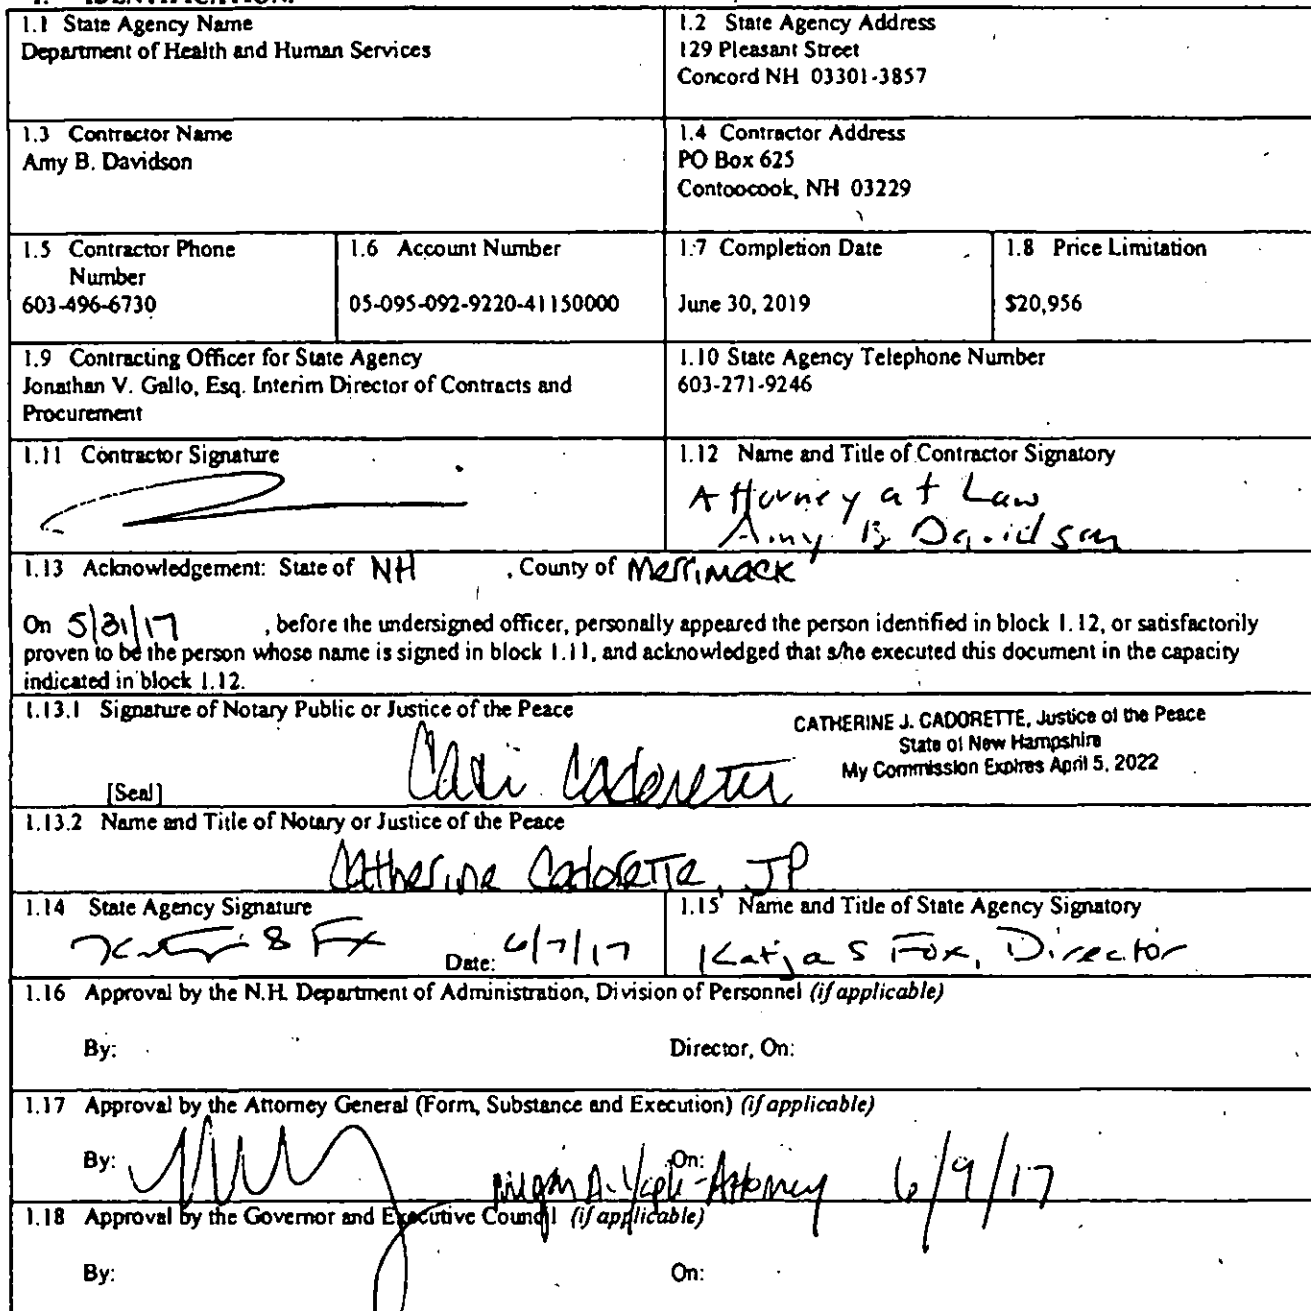 1.1 State Agency Name
Department of Health and Human Services
1.2 State Agency Address
129 Pleasant Street
Concord NH 03301-3857
1.3 Contractor Name
Amy B. Davidson
1.4 Contractor Address
PO Box 625
Contoocook, NH 03229
1.5 Contractor Phone
Number
603-496-6730
1.6 Account Number
05-095-092-9220-41150000
1.7 Completion Date
June 30, 2019
1.8 Price Limitation
$20,956
1.9 Contracting Officer for State Agency
Jonathan V. Gallo, Esq. Interim Director of Contracts and
Procurement
1.10 State Agency Telephone Number
603-271-9246
1.11 Contractor Signature
1.12 Name and Title of Contractor Signatory
Attorney at Law
Amy B Davidson
1.13 Acknowledgement: State of NH , County of Merrimack
On 5/31/17 , before the undersigned officer, personally appeared the person identified in block 1.12, or satisfactorily
proven to be the person whose name is signed in block 1.11, and acknowledged that s/he executed this document in the capacity
indicated in block 1.12.
1.13.1 Signature of Notary Public or Justice of the Peace
CATHERINE J. CADORETTE, Justice of the Peace
State of New Hampshire
My Commission Expires April 5, 2022
Cadorette
[Seal]
1.13.2 Name and Title of Notary or Justice of the Peace
Catherine Cadorette, JP
1.14 State Agency Signature
Date: 6/7/17
1.15 Name and Title of State Agency Signatory
Katja S Fox, Director
1.16 Approval by the N.H. Department of Administration, Division of Personnel (if applicable)
By: Director, On:
1.17 Approval by the Attorney General (Form, Substance and Execution) (if applicable)
By: On: Attorney 6/9/17
1.18 Approval by the Governor and Executive Council (if applicable)
By: On: